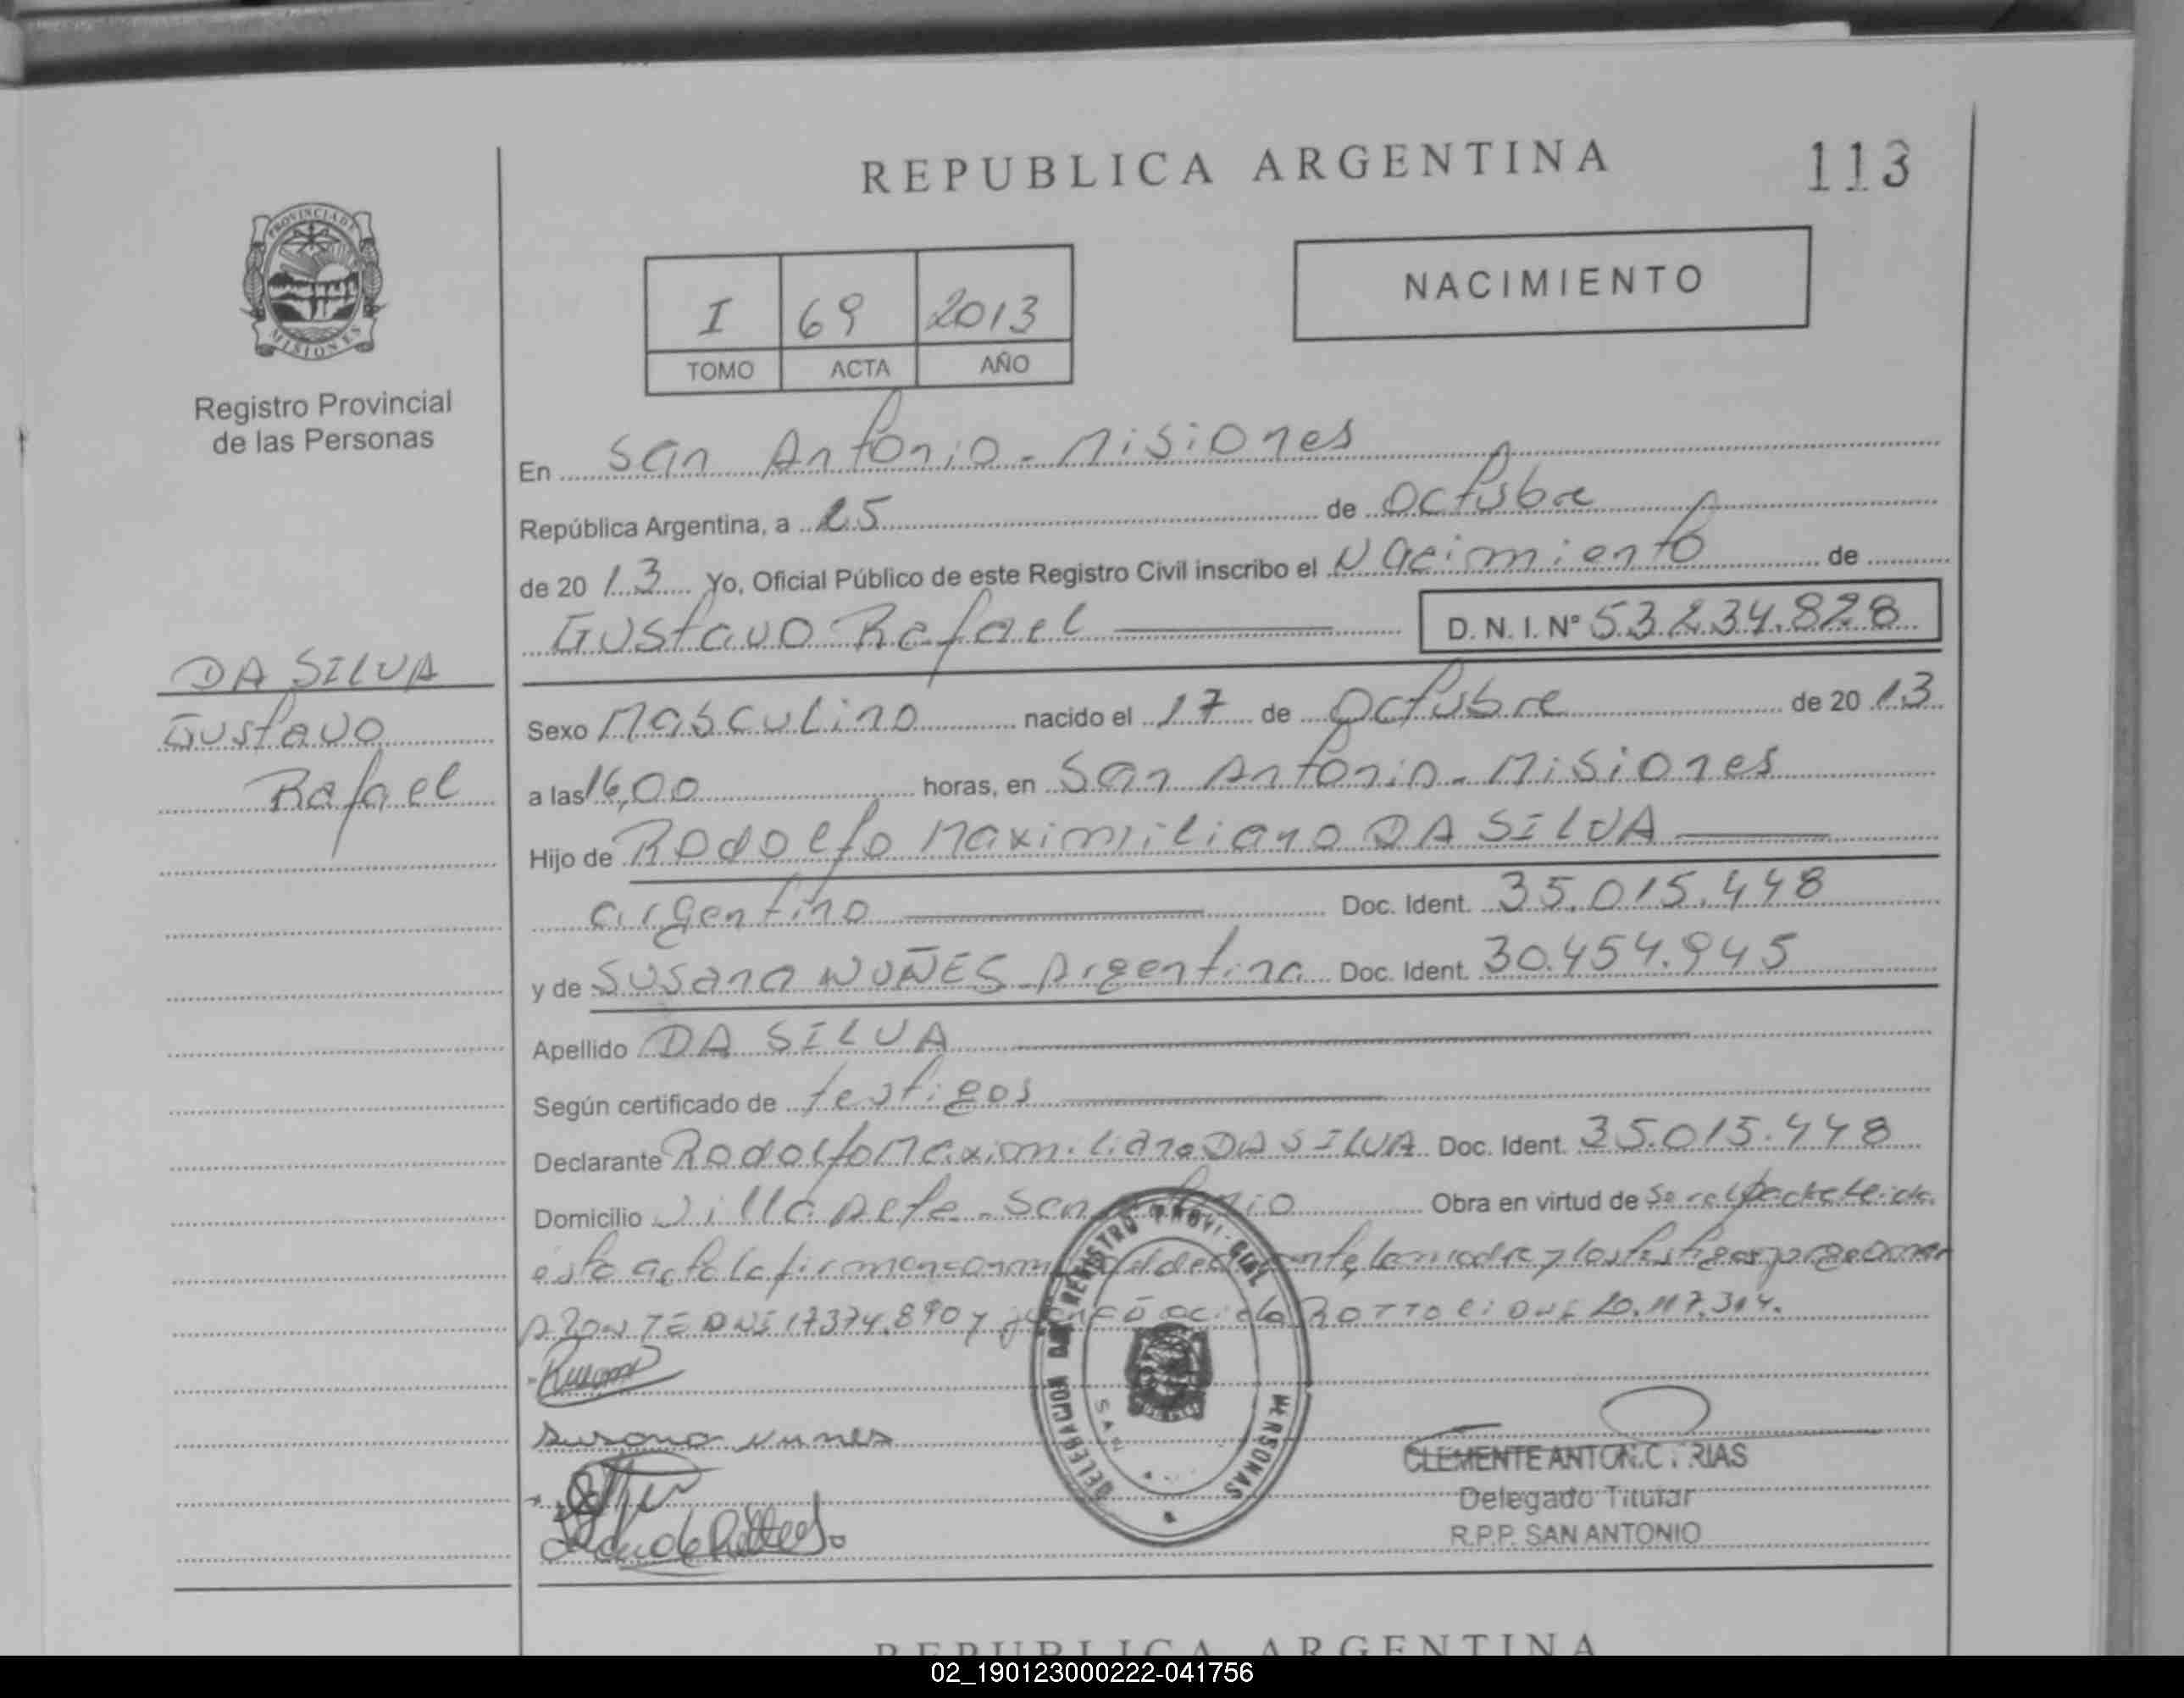 REPUBLICA ARGENTINA
113
PROVINCIA DE
MISIONES
Registro Provincial
de las Personas
I 69 2013
TOMO ACTA AÑO
NACIMIENTO
En San Antonio - Misiones
República Argentina, a 25 de octubre
de 20 13 Yo, Oficial Público de este Registro Civil inscribo el Nacimiento de
Gustavo Rafael D. N. I. N° 53.234.828
DA SILVA
Gustavo
Rafael
Sexo Masculino nacido el 17 de Octubre de 20 13
a las 16,00 horas, en San Antonio - Misiones
Hijo de Rodolfo Maximiliano DA SILVA
argentino Doc. Ident. 35.015.448
y de Susana NUÑES - Argentina Doc. Ident. 30.454.945
Apellido DA SILVA
Según certificado de testigos
Declarante Rodolfo Maximiliano DA SILVA Doc. Ident. 35.015.448
Domicilio Villa - San Obra en virtud de
esta acta la firman la madre y los testigos
DNI 17374.890 y DNI 20.117.314.
Susana Nunes
REGISTRO PERSONAS
SAN
CLEMENTE
Delegado Titular
R.P.P. SAN ANTONIO
REPUBLICA ARGENTINA
02_190123000222-041756